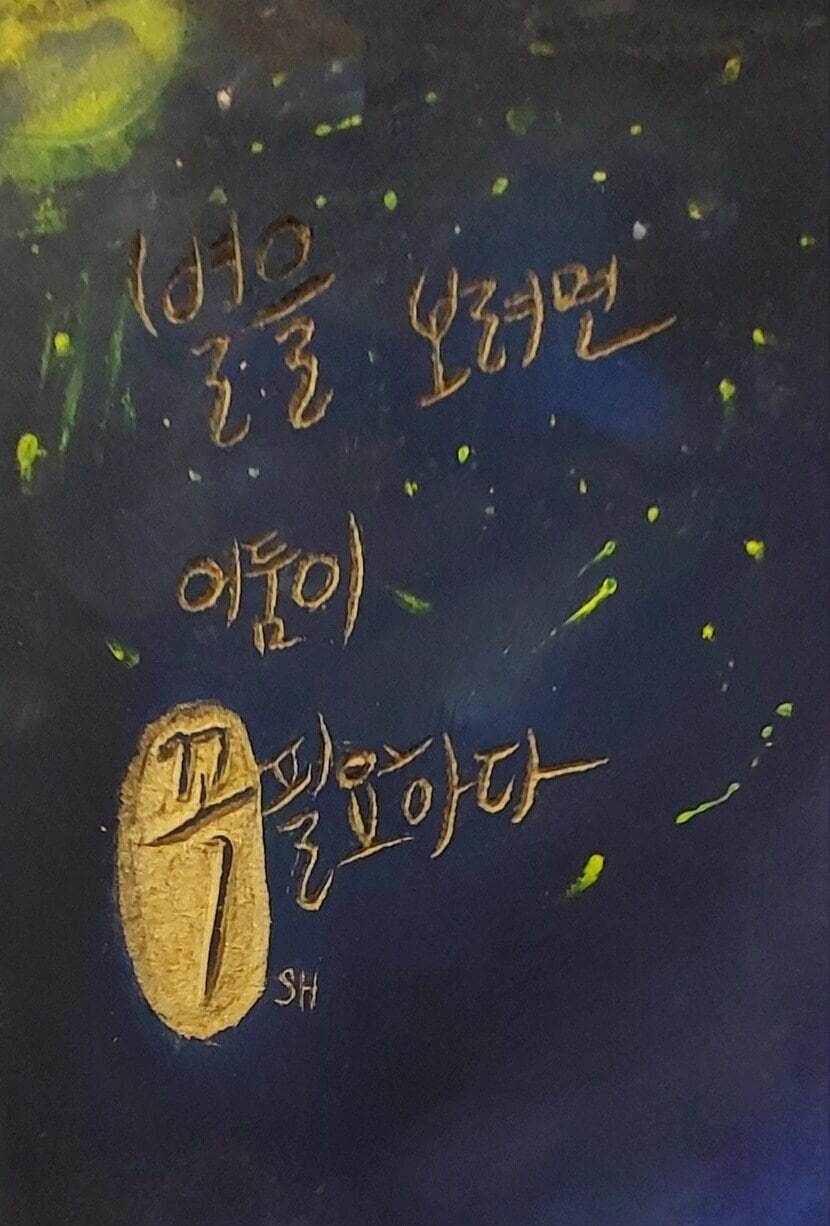 별을 보려면
어둠이
꼭 필요하다
SH